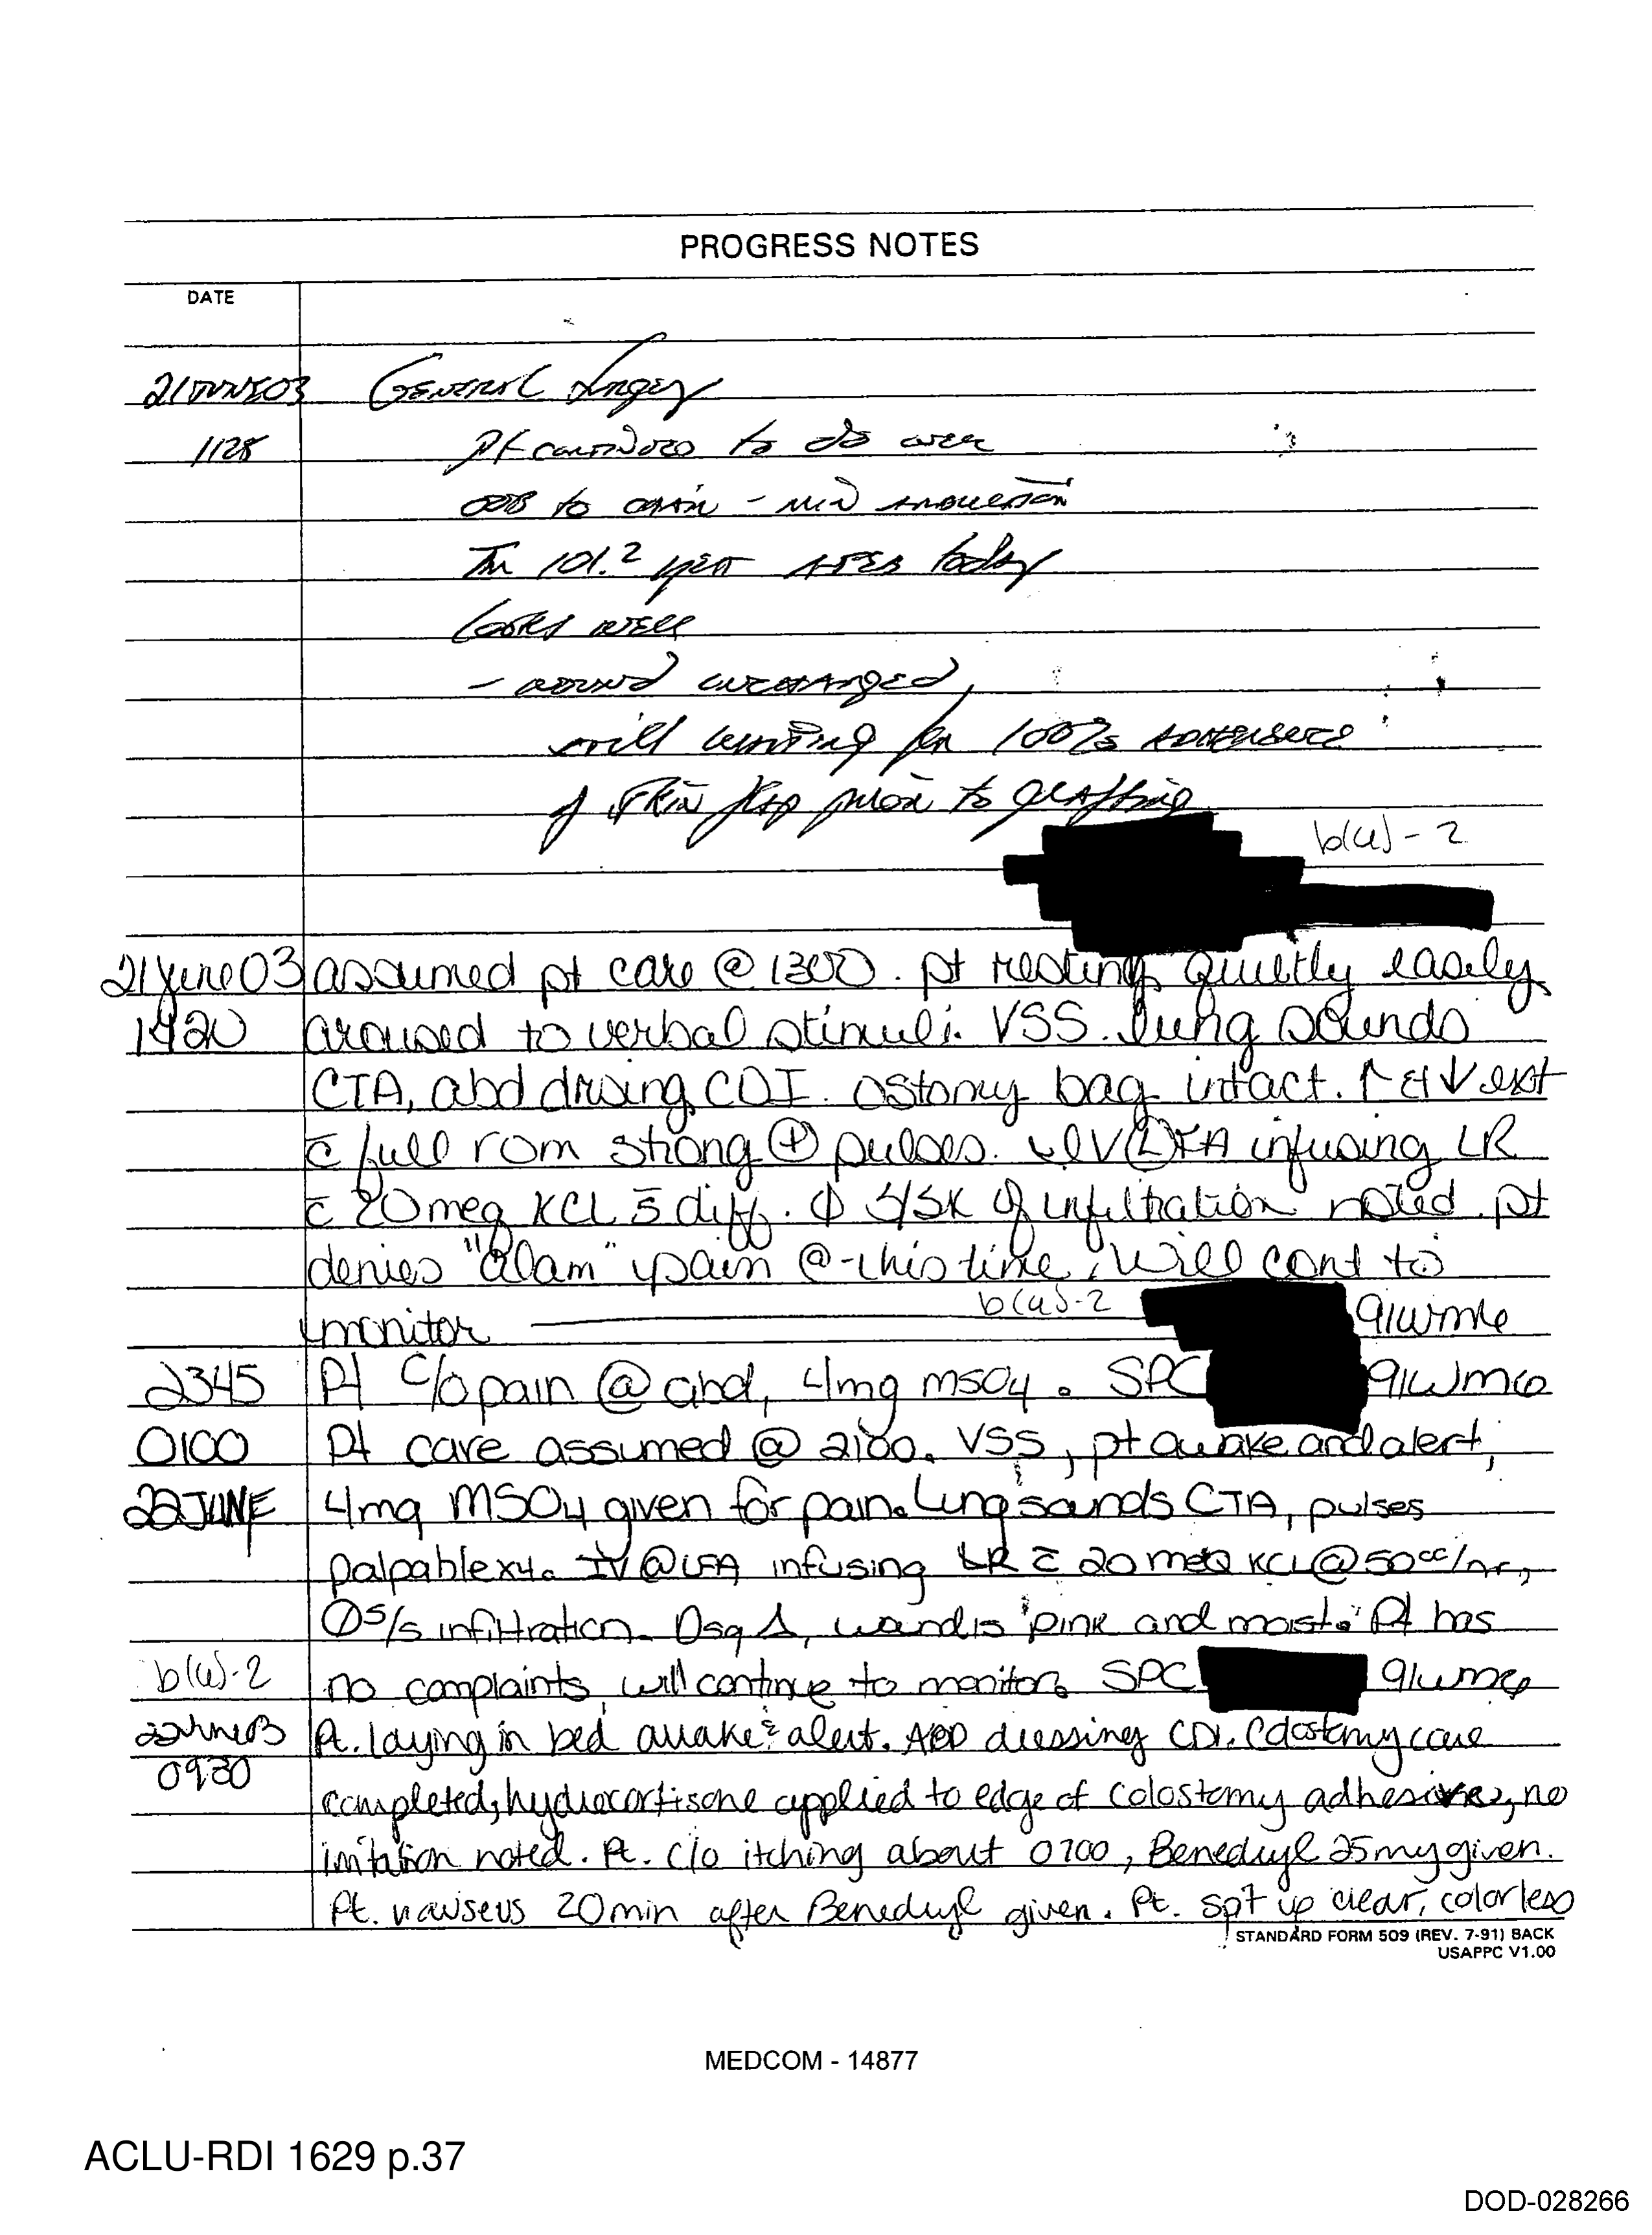 PROGRESS NOTES
DATE
21JUNE03 GENERAL Surgery
1128 Pt continues to do well
OOB to chair -
Tm 101.2 yest AFEB today
Looks well
- wound unchanged,
still waiting for 100% ADHERENCE
of skin flap prior to grafting
b(6)-2
21June03 assumed pt care @ 1300. pt resting quietly easily
1420 aroused to verbal stimuli. VSS. lung sounds
CTA, abd drsing CDI. ostomy bag intact. ↑ et ↓ ext
c̄ full rom strong ⊕ pulses. IV Ⓛ FA infusing LR
c̄ 20 meq KCL s̄ diff. ∅ S/Sx of infiltration noted. pt
denies "alam" pain @ this time, will cont to
monitor b(6)-2 91wm6
2345 Pt c/o pain @ abd, 4mg MSO4. SPC 91WM6
0100 Pt care assumed @ 2100. VSS, pt awake and alert,
22JUNE 4mg MSO4 given for pain. Lung sounds CTA, pulses
palpable x4. IV @ LFA infusing LR c̄ 20 meq KCL @ 50cc/hr,
∅ s/s infiltration. Dsg Δ, wound is pink and moist. Pt has
b(6)-2 no complaints, will continue to monitor. SPC 91wm6
22June03 Pt. laying in bed awake & alert. ABD dressing CDI. Colostomy care
0930 completed, hydrocortisone applied to edge of colostomy adhesive, no
irritation noted. Pt. c/o itching about 0700, Benedryl 25mg given.
Pt. nauseus 20min after Benedryl given. Pt. spit up clear, colorless
STANDARD FORM 509 (REV. 7-91) BACK
USAPPC V1.00
MEDCOM - 14877
ACLU-RDI 1629 p.37
DOD-028266